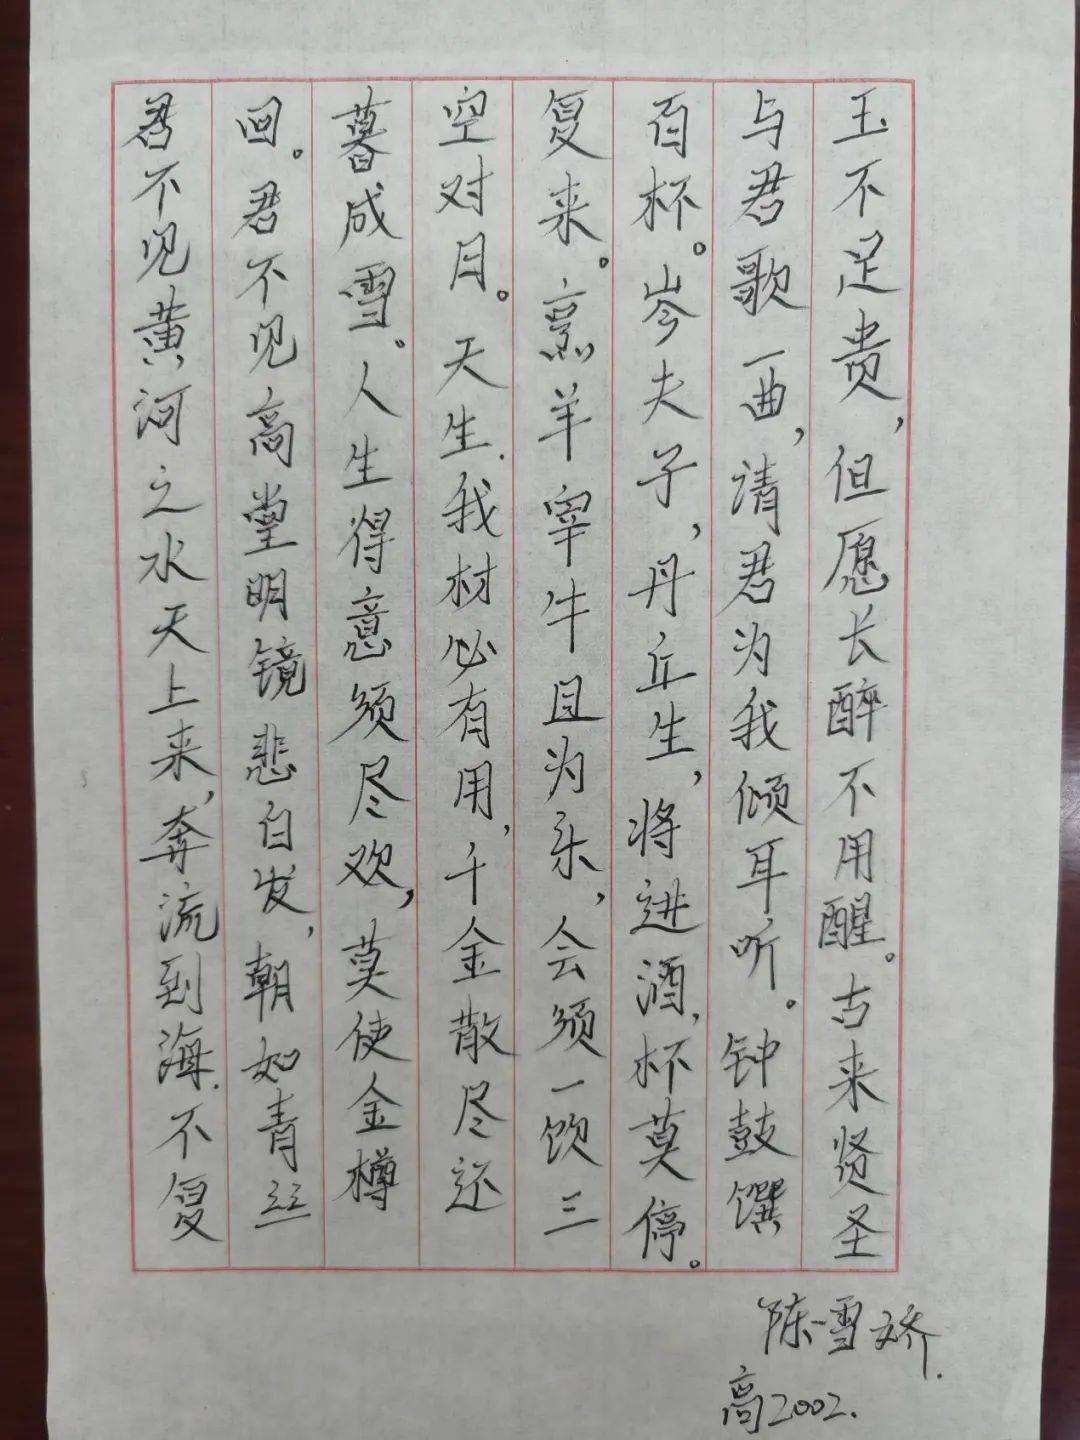 君不见黄河之水天上来，奔流到海.不复
回。君不见高堂明镜悲白发，朝如青丝
暮成雪。人生得意须尽欢，莫使金樽
空对月。天生.我材必有用，千金散尽还
复来。烹羊宰牛且为乐，会须一饮三
百杯。岑夫子，丹丘生，将进酒，杯莫停。
与君歌一曲，请君为我倾耳听。钟鼓馔
玉不足贵，但愿长醉不用醒。古来贤圣
陈雪娇.
高2002.